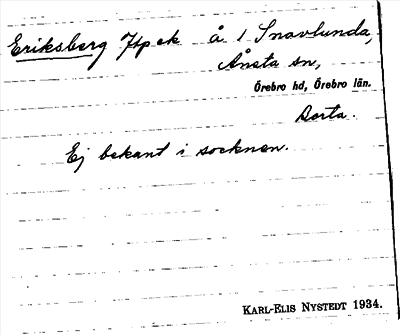 Eriksberg Htp ek å 1 Snavlunda,
Ånsta sn,
Örebro hd, Örebro län.
Borta.
Ej bekant i socknen.
KARL-ELIS NYSTEDT 1934.